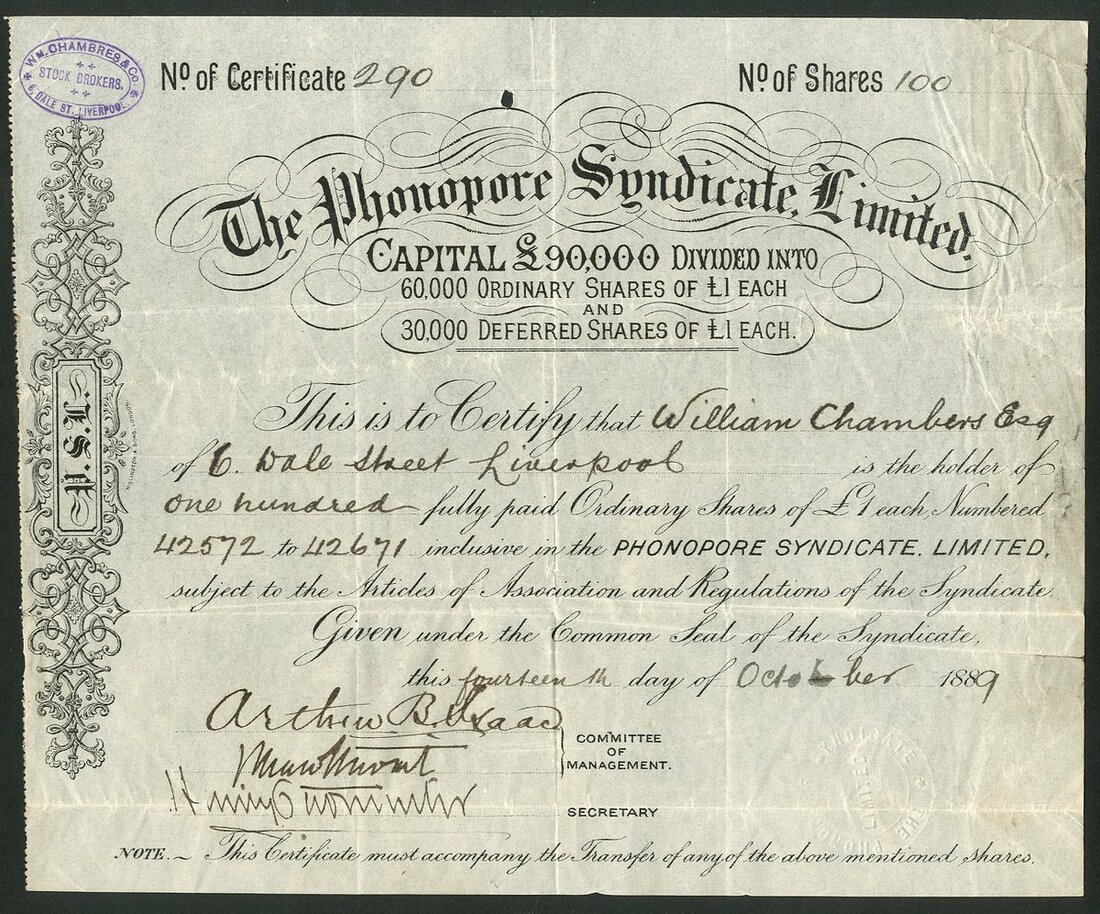 WM. CHAMBRES & Co.
STOCK BROKERS.
6, DALE ST. LIVERPOOL.
No. of Certificate 290
No. of Shares 100
The Phonopore Syndicate, Limited.
CAPITAL £90,000 DIVIDED INTO
60,000 ORDINARY SHARES OF £1 EACH
AND
30,000 DEFERRED SHARES OF £1 EACH.
P.S.L.
This is to Certify that William Chambers Esq
of 6. Dale Street Liverpool is the holder of
one hundred fully paid Ordinary Shares of £1 each, Numbered
42572 to 42671 inclusive in the PHONOPORE SYNDICATE, LIMITED,
subject to the Articles of Association and Regulations of the Syndicate.
Given under the Common Seal of the Syndicate,
this fourteenth day of October 1889
Arthur B. Isaac
COMMITTEE
OF
MANAGEMENT.
SECRETARY
NOTE.~ This Certificate must accompany the Transfer of any of the above mentioned shares.
THE
SYNDICATE
LIMITED